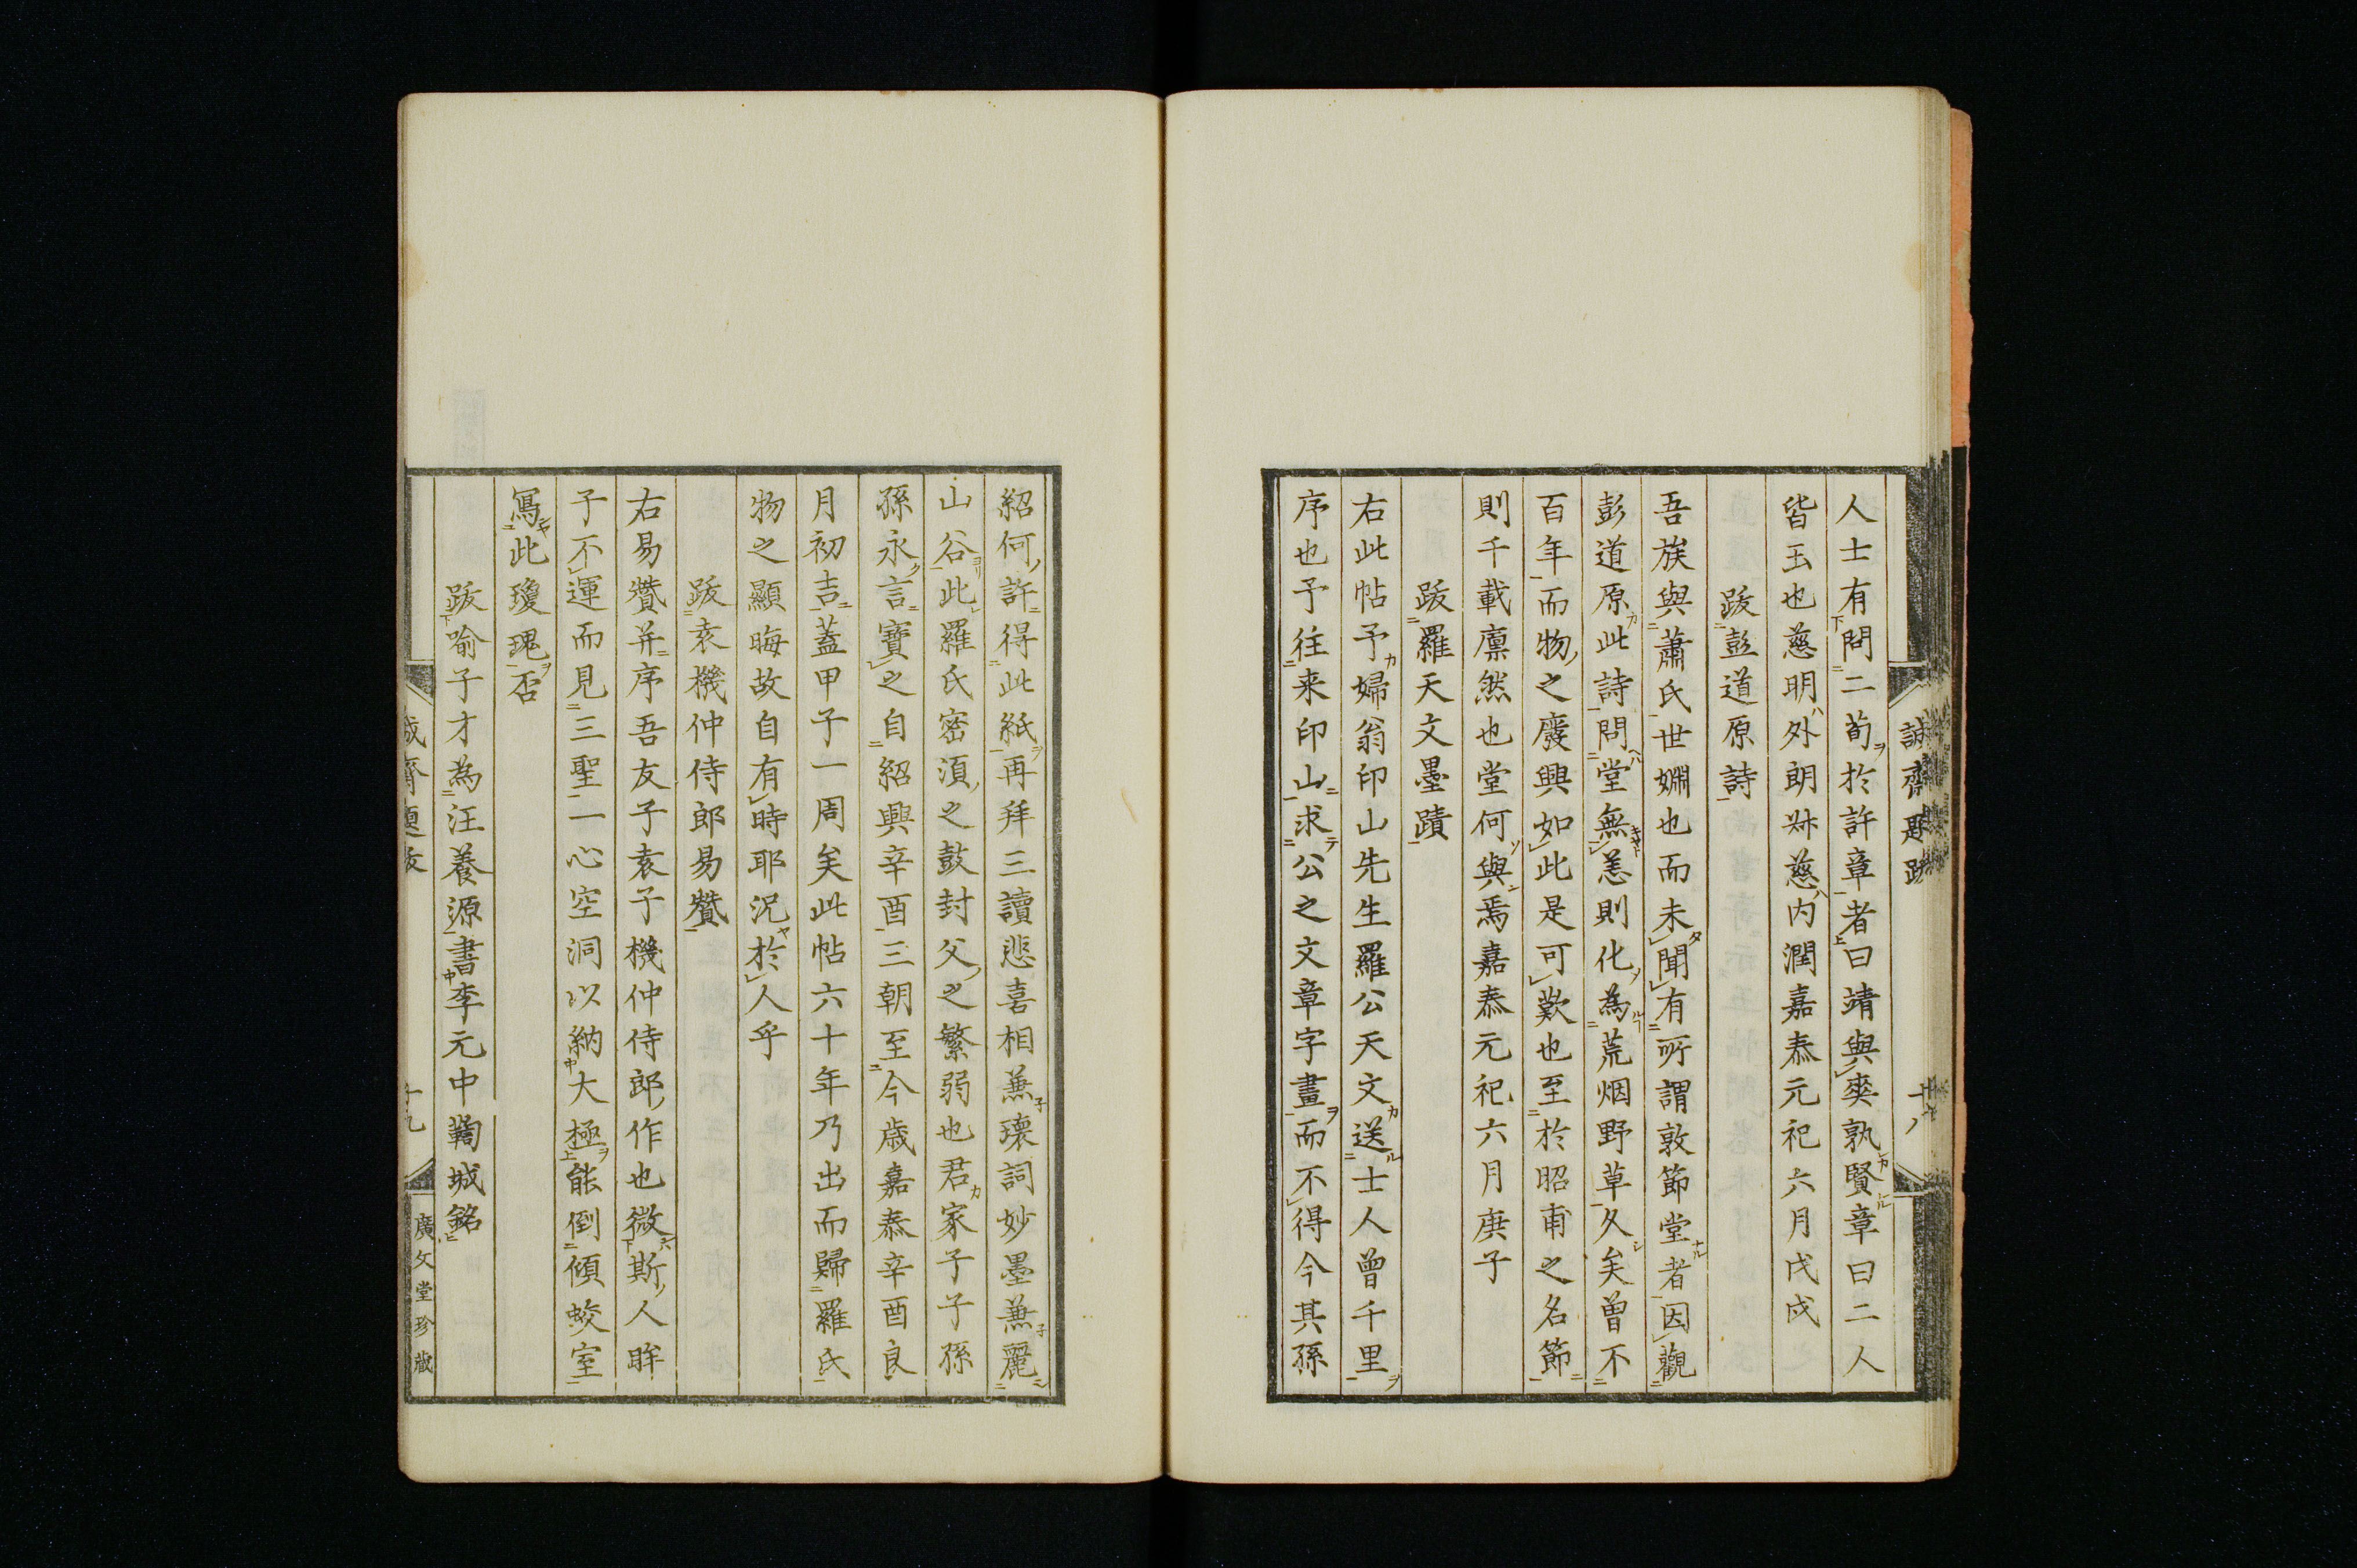 人士有問二荀於許章者曰靖與爽孰賢章曰二人
皆玉也慈明外朗叔慈内潤嘉泰元祀六月戊戌
跋彭道原詩
吾族與蕭氏世婣也而未聞有所謂敦節堂者因觀
彭道原此詩問堂無恙則化為荒烟野草久矣曽不
百年而物之廢興如此是可歎也至於昭甫之名節
則千載凛然也堂何與焉嘉泰元祀六月庚子
跋羅天文墨蹟
右此帖予婦翁印山先生羅公天文送士人曾千里
序也予往来印山求公之文章字畫而不得今其孫
紹何許得此紙再拜三讀悲喜相兼瓌詞妙墨兼麗
山谷此羅氏密湏之鼓封父之繁弱也君家子子孫
孫永言寶之自紹興辛酉三朝至今歳嘉泰辛酉良
月初吉蓋甲子一周矣此帖六十年乃出而歸羅氏
物之顯晦故自有時耶況於人乎
跋袁機仲侍郎易贊
右易贊并序吾友子袁子機仲侍郎作也微斯人眸
子不運而見三聖一心空洞以納大極能倒傾蛟室
寫此瓊瑰否
跋喻子才為汪養源書李元中鞫城銘
誠齋題跋
十八
誠齋題跋
十九
廣文堂珍藏